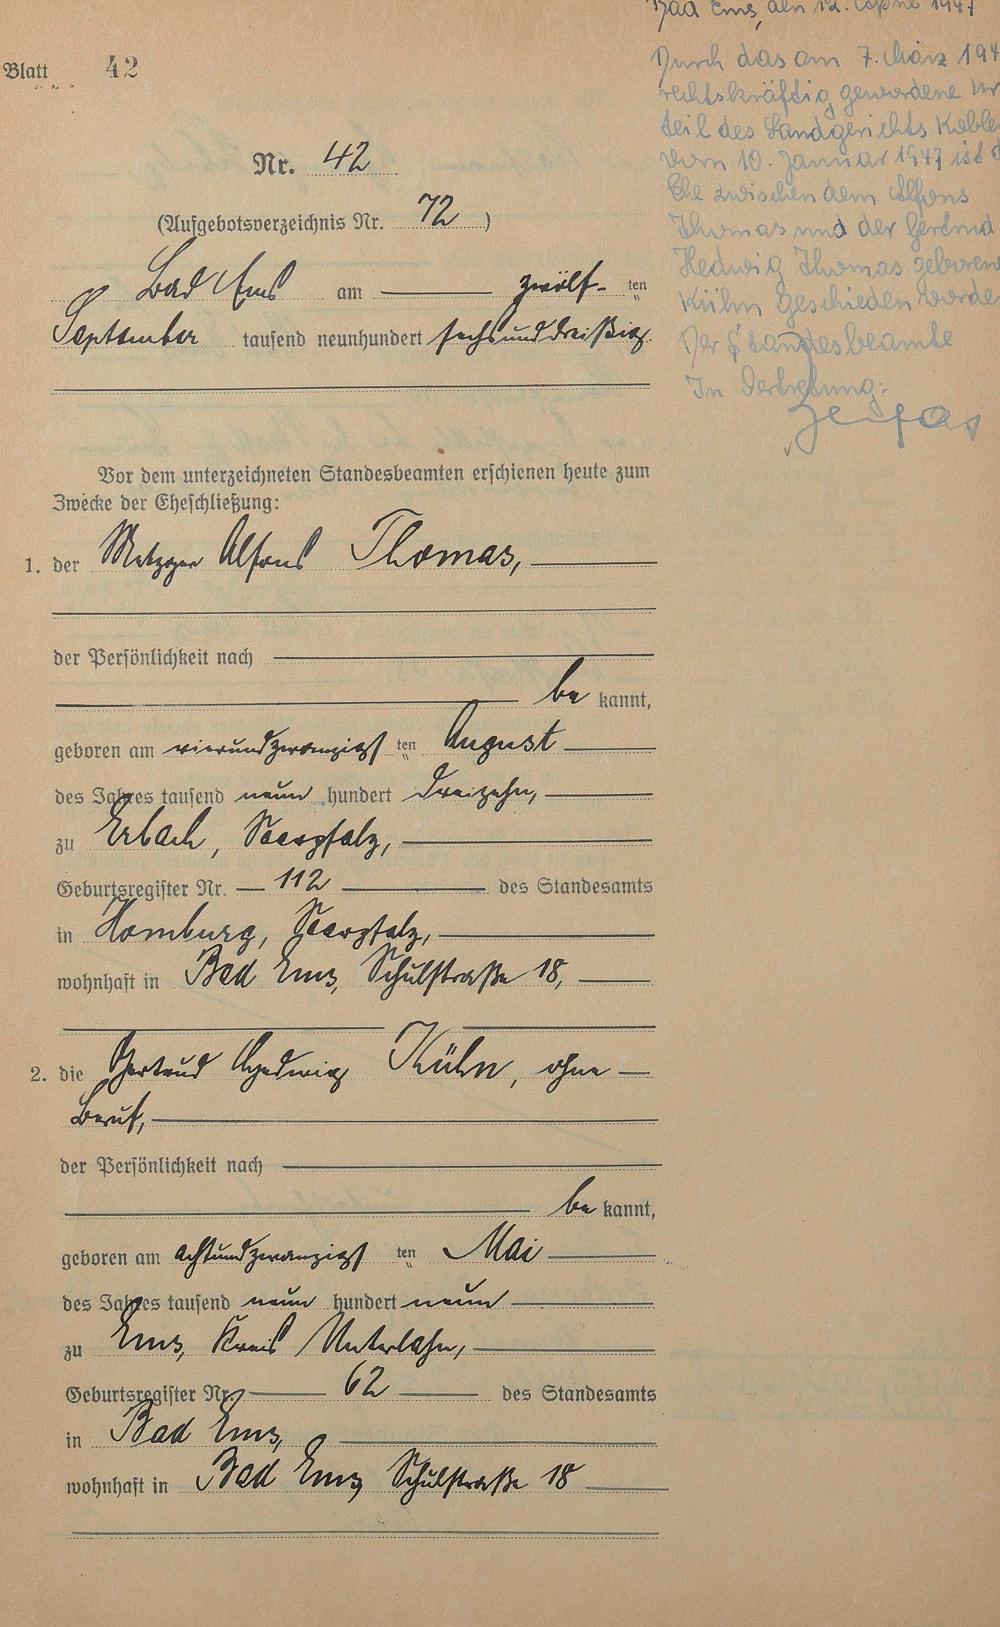 Blatt 42
Nr. 42
(Aufgebotsverzeichnis Nr. 72)
Bad Ems am zwölf ten
September tausend neunhundert sechsunddreißig.
Vor dem unterzeichneten Standesbeamten erschienen heute zum
Zwecke der Eheschließung:
1. der Metzger Alfons Thomas,
der Persönlichkeit nach
be kannt,
geboren am vierundzwanzigst ten August
des Jahres tausend neun hundert dreizehn,
zu Erbach, Saarpfalz,
Geburtsregister Nr. 112 des Standesamts
in Homburg, Saarpfalz,
wohnhaft in Bad Ems, Schulstraße 18,
2. die Gertrud Hedwig Kühn, ohne
Beruf,
der Persönlichkeit nach
be kannt,
geboren am achtundzwanzigst ten Mai
des Jahres tausend neun hundert neun
zu Ems, Kreis Unterlahn,
Geburtsregister Nr. 62 des Standesamts
in Bad Ems,
wohnhaft in Bad Ems, Schulstraße 18
Bad Ems, den 12. April 1947
Durch das am 7. März 194
rechtskräftig gewordene Ur
teil des Landgerichts Koblen
vom 10. Januar 1947 ist d
Ehe zwischen dem Alfons
Thomas und der Gertrud
Hedwig Thomas geborene
Kühn geschieden worde
Der Standesbeamte
In Vertretung: